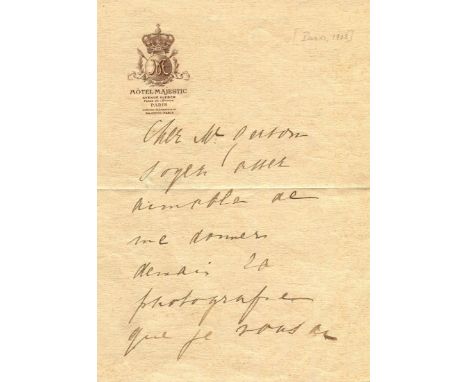 [Paris, 1908]
HÔTEL MAJESTIC
AVENUE KLÉBER
PARIS
MAJESTIC-PARIS
Cher Mr Gerson
soyez assez
aimable de
me donner
demain la
photografie
que je vous ai